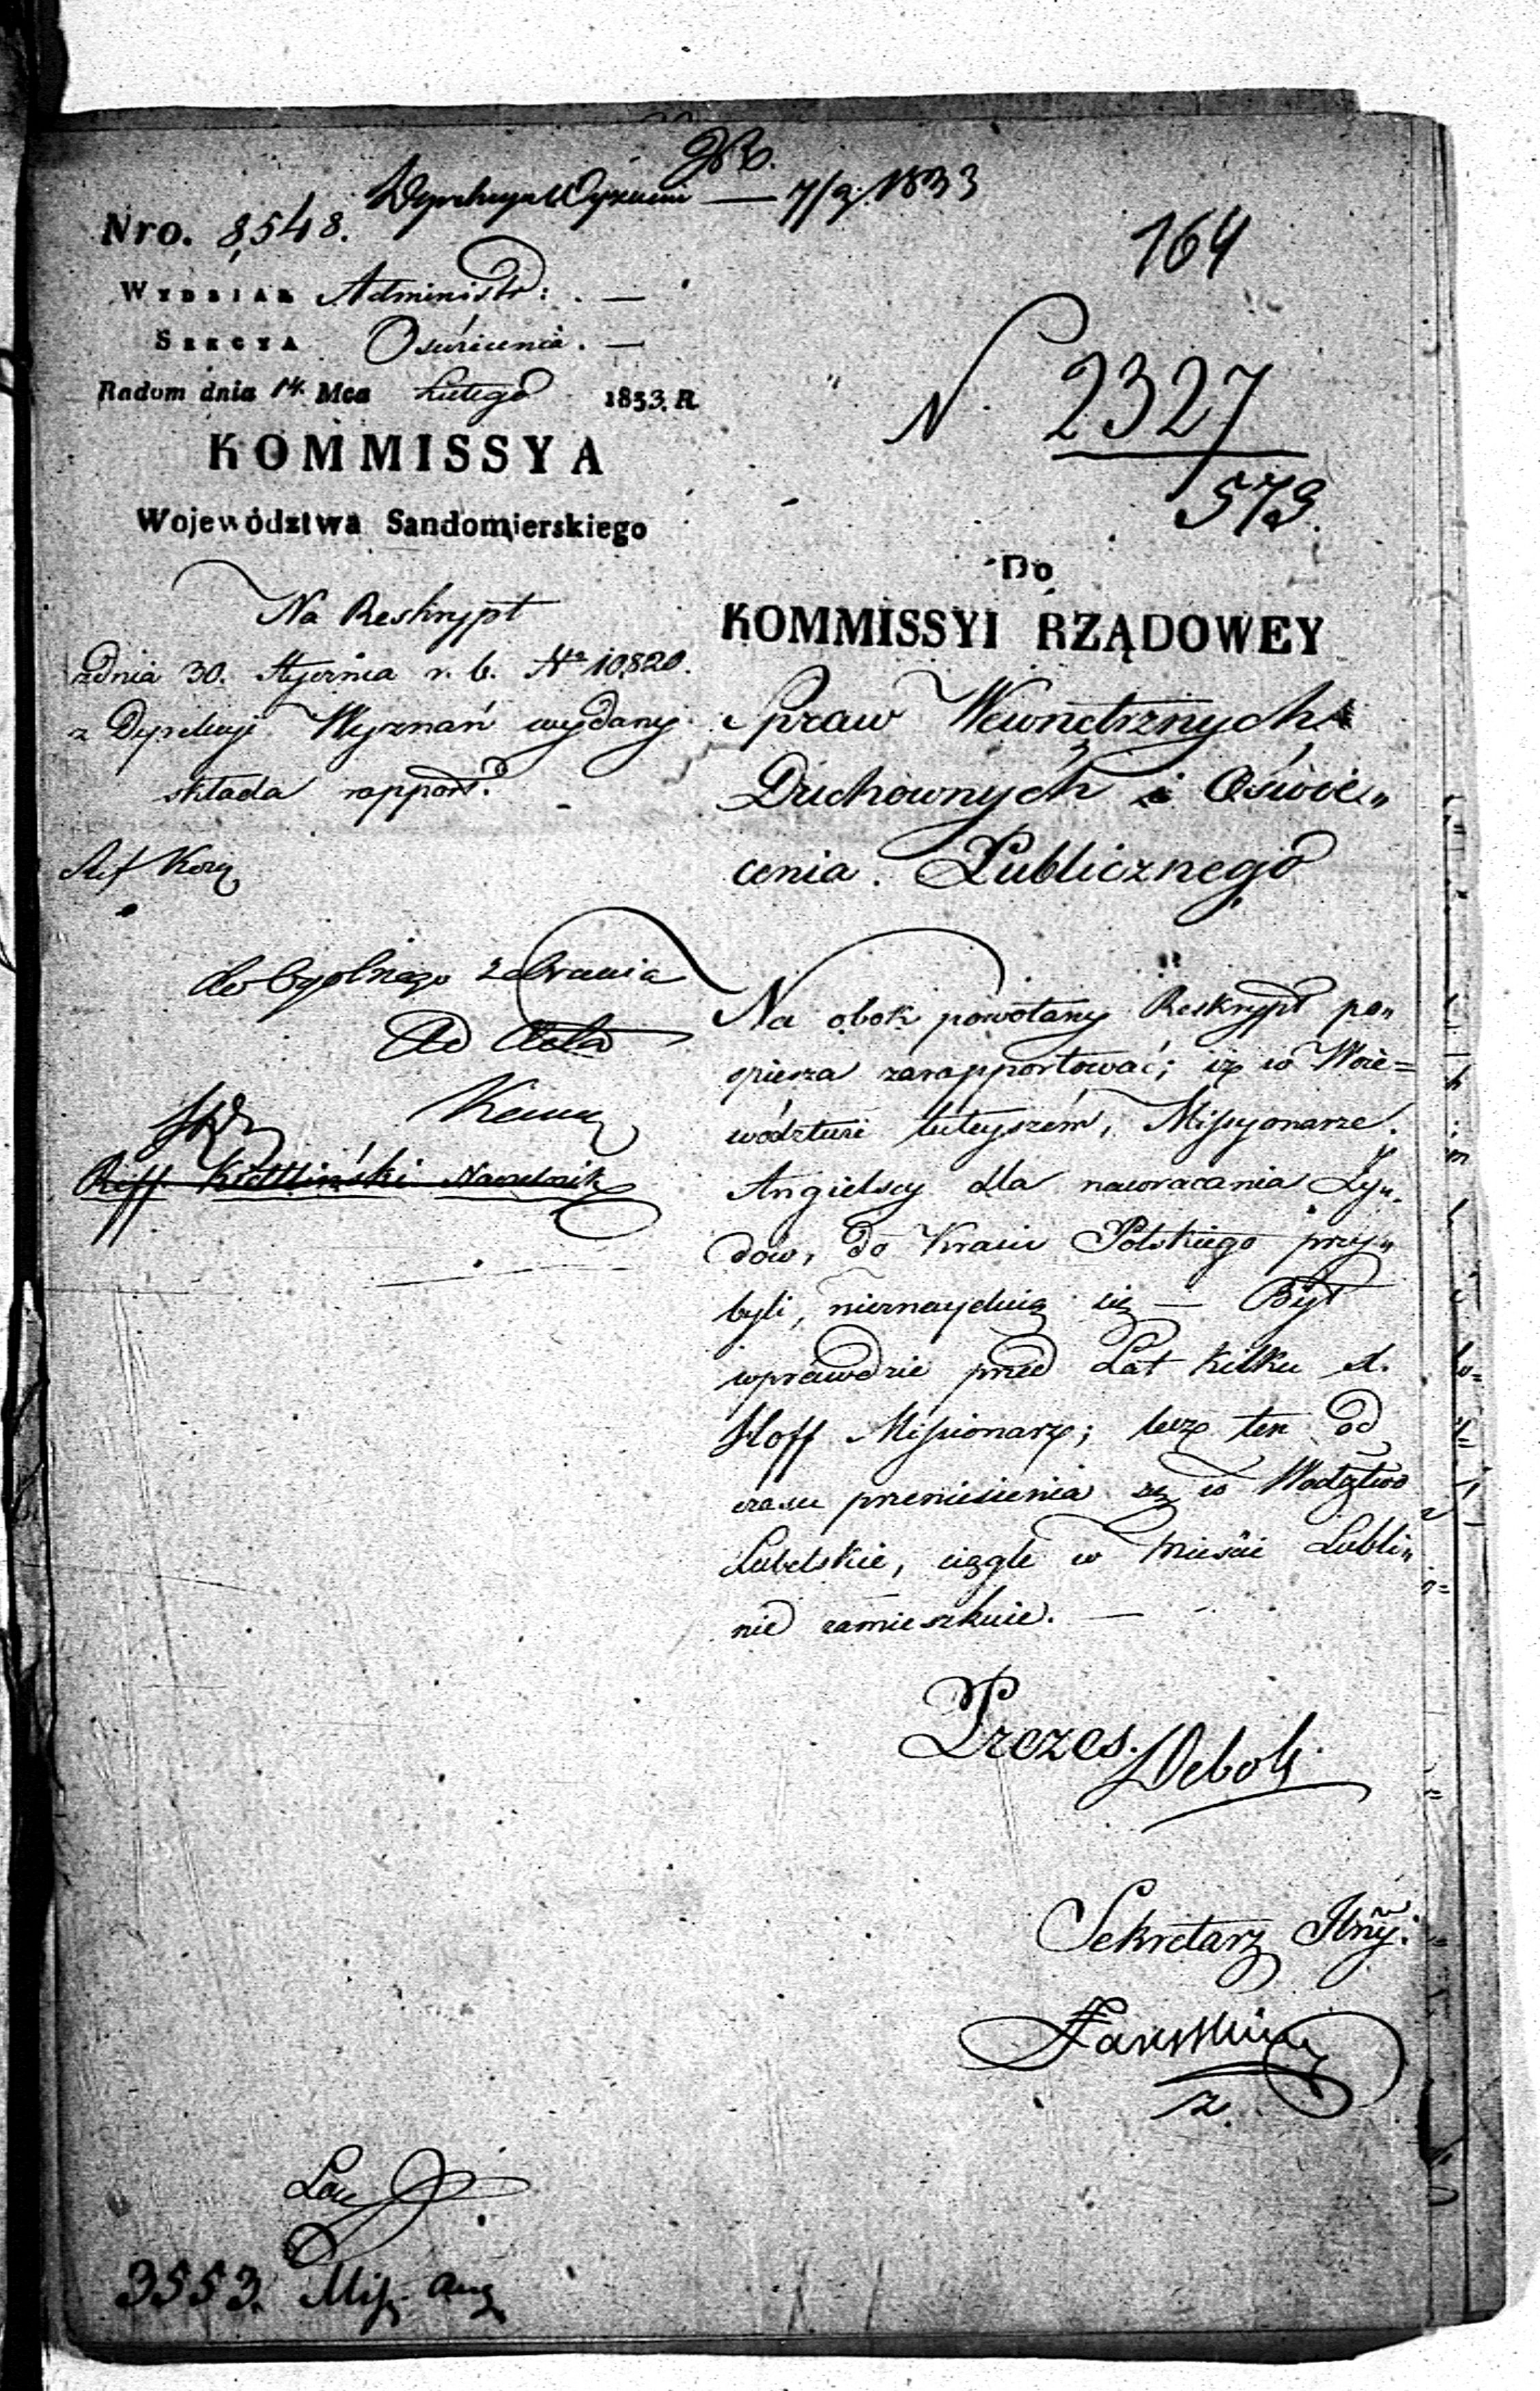 7/3 1833
Nro. 8,548.
164
WYDZIAŁ Administr: . —
SEKCYA Oświecenia. —
Radom dnia 14. Mca Lutego 1833. R
N 2327
573.
KOMMISSYA
Województwa Sandomierskiego
Na Reskrypt
zdnia 30. Stycznia r. b. No 10,820.
z Dyrekcyi Wyznań wydany
składa rapport.
Do
KOMMISSYI RZĄDOWEY
Spraw Wewnętrznych
Duchownych i Oświe„
cenia. Publicznego
do Ogolnego zebrania
Ad Acta
Na obok powołany Reskrypt po„
spiesza zarapportować; iż w Woie=
wództwie tuteyszém, Missyonarze.
Angielscy dla nawracania Ży„
dów, do Kraiu Polskiego przy„
byli, nieznayduią się — Był
wprawdzie przed Lat kilku
Hoff Missionarz; lecz ten od
czasu przeniesienia się w Wodztwo
Lubelskie, ciągle w Mieście Lubli„
nie zamieszkuie. —
Prezes.
Sekretarz Jlny:
3553. Miss. ang